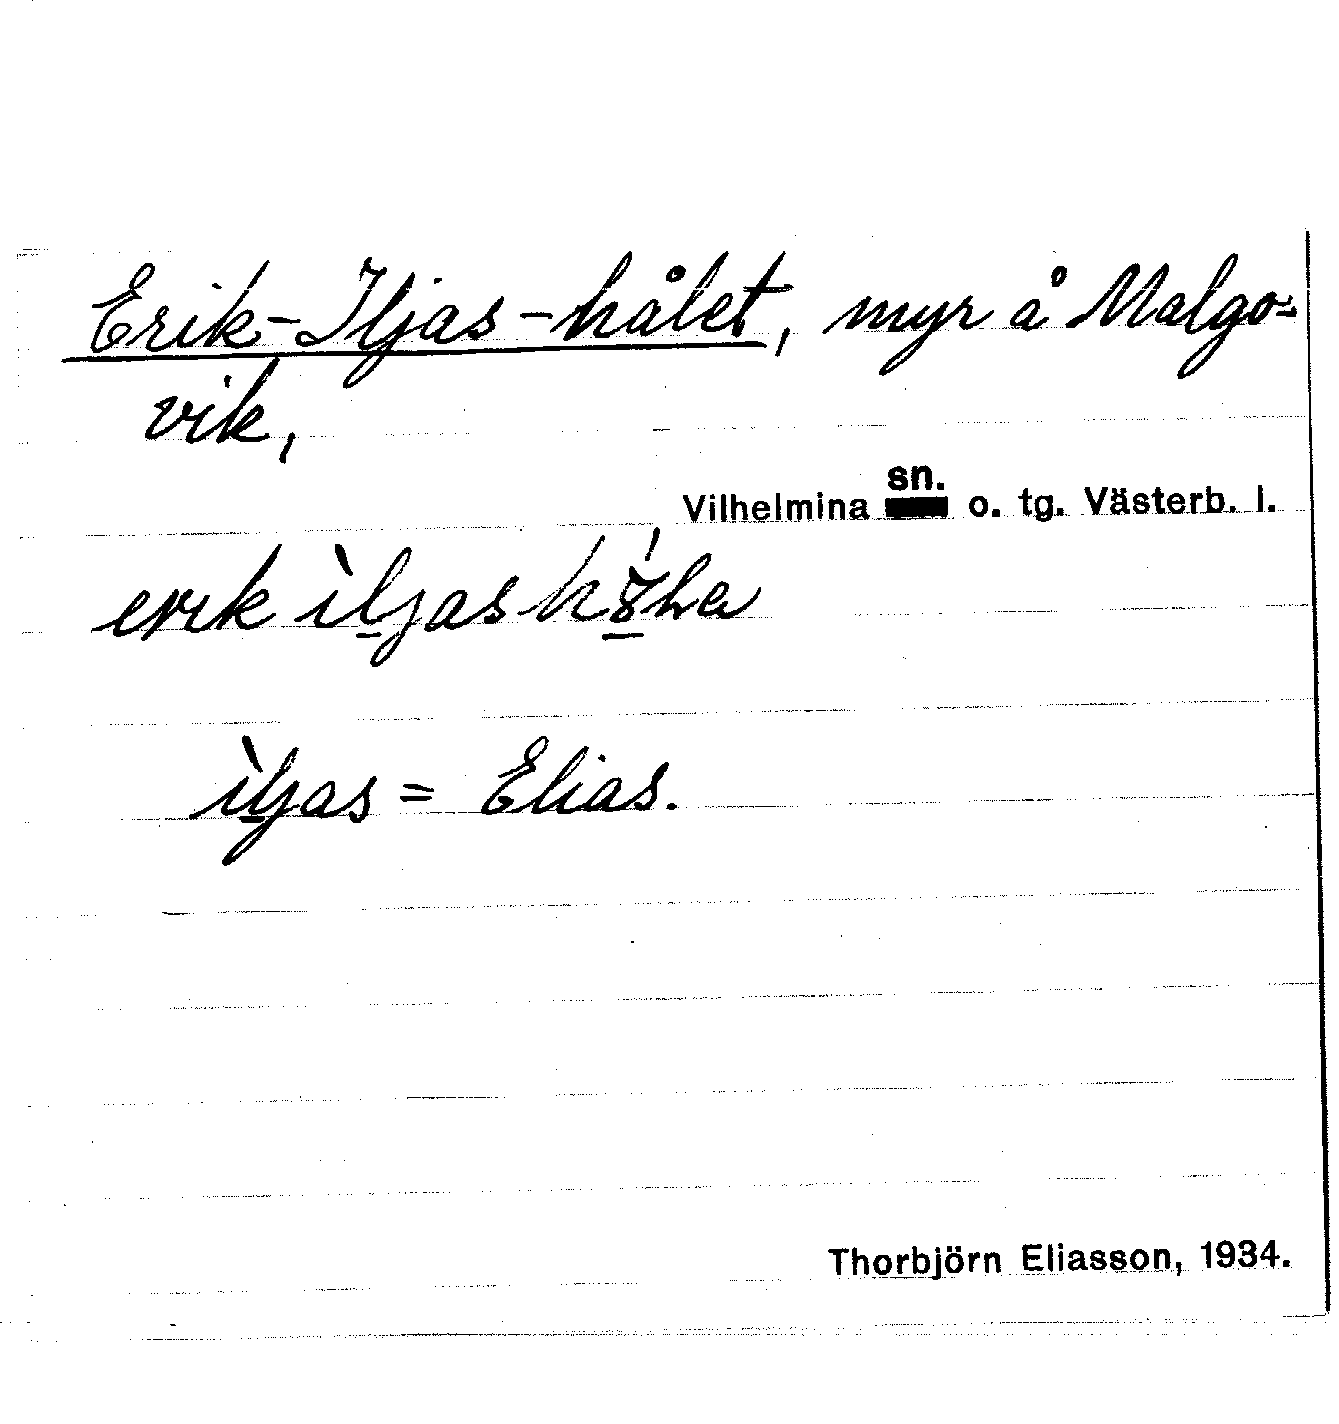 Erik-Iljas-hålet, myr å Malgo-
vik,
Vilhelmina sn. o. tg. Västerb. l.
erik ìljas
ìljas = Elias.
Thorbjörn Eliasson, 1934.